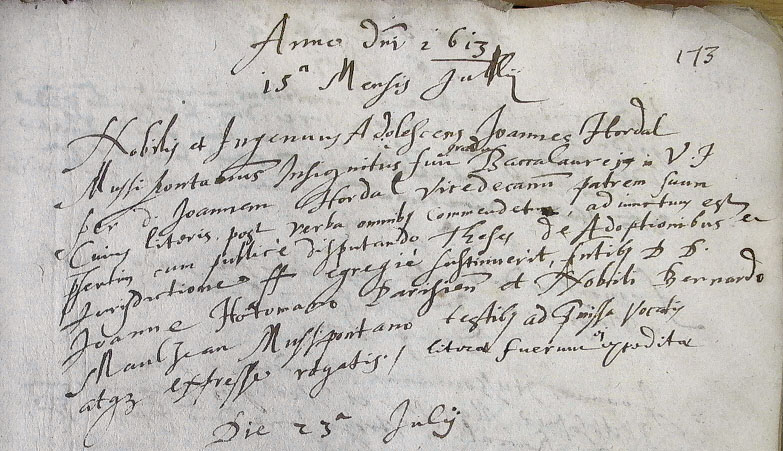 Anno dni 1613
173
15ª Mensis Julij
Nobilis et Ingenuus Adolescens Joannes Hordal
Mussipontanus Insignitus fuit gradu Baccalaureatus in V. J
per d. Joannem Hordal Vicedecanum patrem suum
Cuius literis post verba omnibus commendetur, adiunctum est
cum publicè disputando Theses de Adoptionibus et
Jurisdictione ff egregiè sustinuerit, pntibus D D.
Joanne Hotomano Parisien et Nobili Bernardo
Mauljean Mussipontano testibus ad pmissa vocatis
atq3 expresse rogatis / literæ fuerunt expeditæ
Die 23ª Julij